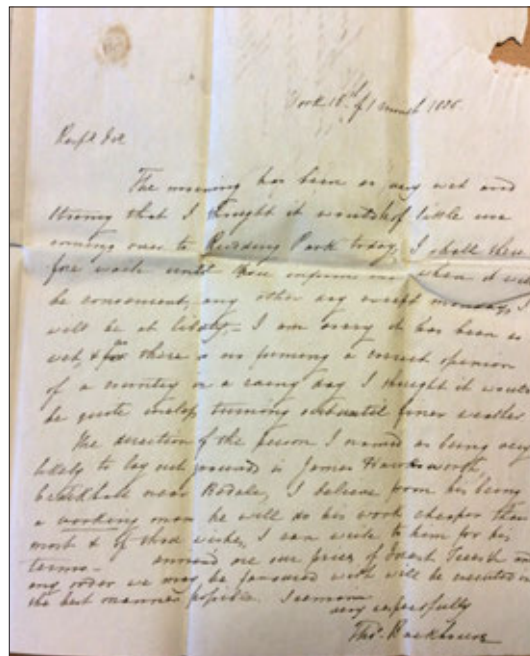 York 18th of March 1836.
Resp'd Sir
The morning has been so very wet and
strong that I thought it would be of little use
coming over to Rudding Park today, I shall there
fore wait until thou informs me when it will
be convenient, any other day except monday, I
will be at liberty. - I am sorry it has been so
wet, & there is no forming a correct opinion
of a country on a rainy day I thought it would
be quite useless turning out until finer weather
The direction of the person I named as being very
likely to lay out grounds is James Hawksworth,
near Bedale, I believe from his being
a working man he will do his work cheaper than
most & if thou wishes, I can write to him for his
terms - annexed are our prices of Forest Trees &
any order we may be favoured with will be executed in
the best manner possible. I remain
very respectfully
Thos. Backhouse